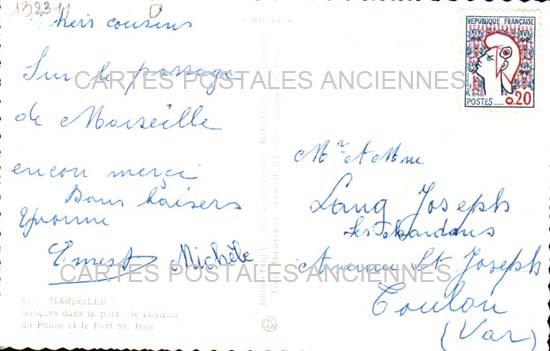 13231
Mers cousins
Sur le passage
de Marseille
encor merci
Bons baisers
Yvonne
Ernest Michèle
MARSEILLE
Barques dans le port - le château
du Pharo et le Fort St. Jean
REPUBLIQUE FRANÇAISE
POSTES 0,20
Mr et Mme
Lang Joseph
Les
Avenue St Joseph
Toulon
(Var)
CARTES POSTALES ANCIENNES
CARTES POSTALES ANCIENNES